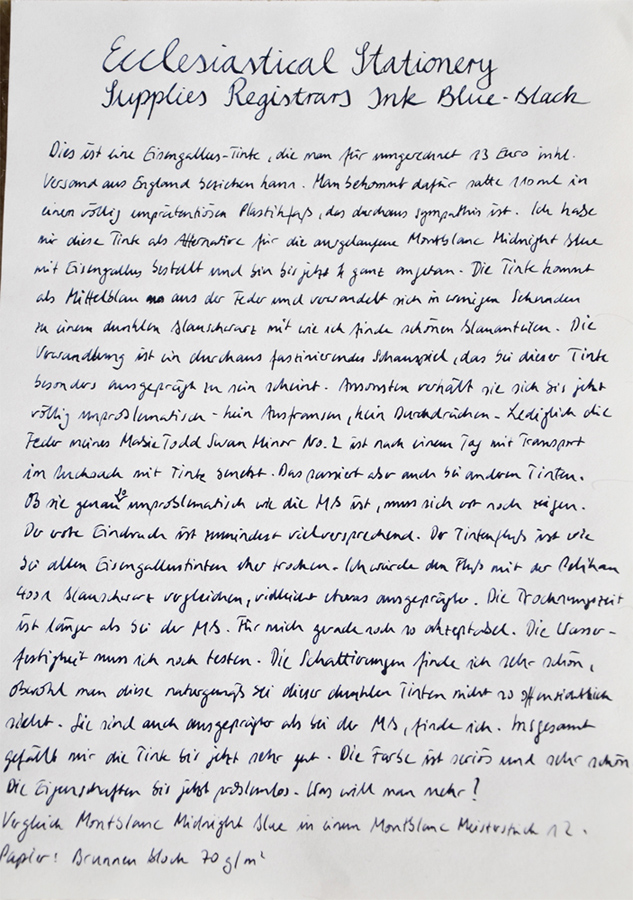 Ecclesiastical Stationery
Supplies Registrars Ink Blue-Black
Dies ist eine Eisengallus-Tinte, die man für umgerechnet 13 Euro inkl.
Versand aus England beziehen kann. Man bekommt dafür satte 110ml in
einem völlig unprätentiösen Plastikfaß, das durchaus sympathis ist. Ich habe
mir diese Tinte als Alternative für die ausgelaufene Montblanc Midnight Blue
mit Eisengallus bestellt und bin bis jetzt ganz angetan. Die Tinte kommt
als Mittelblau aus der Feder und verwandelt sich in wenigen Sekunden
zu einem dunklen Blauschwarz mit wie ich finde schönen Blauanteilen. Die
Verwandlung ist ein durchaus faszinierendes Schauspiel, das bei dieser Tinte
besonders ausgeprägt zu sein scheint. Ansonsten verhält sie sich bis jetzt
völlig unproblematisch - kein Ausfransen, kein Durchdrücken - Lediglich die
Feder meines Mabie Todd Swan Minor No. 2 ist nach einem Tag mit Transport
im Rucksack mit Tinte benetzt. Das passiert aber auch bei anderen Tinten.
Ob sie genau so unproblematisch wie die MB ist, muss sich erst noch zeigen.
Der erste Eindruck ist zumindest vielversprechend. Der Tintenfluß ist wie
bei allen Eisengallustinten eher trocken. Ich würde den Fluß mit der Pelikan
4001 Blauschwarz vergleichen, vielleicht etwas ausgeprägter. Die Trocknungszeit
ist länger als bei der MB. Für mich gerade noch so akzeptabel. Die Wasser-
festigkeit muss ich noch testen. Die Schattierungen finde ich sehr schön,
obwohl man diese naturgemäß bei dieser dunklen Tinten nicht so offensichtlich
sieht. Sie sind auch ausgeprägter als bei der MB, finde ich. Insgesamt
gefällt mir die Tinte bis jetzt sehr gut. Die Farbe ist seriös und sehr schön
Die Eigenschaften bis jetzt problemlos. Was will man mehr?
Vergleich Montblanc Midnight Blue in einem MontBlanc Meisterstück 12.
Papier: Brunnen Block 70 g/m²